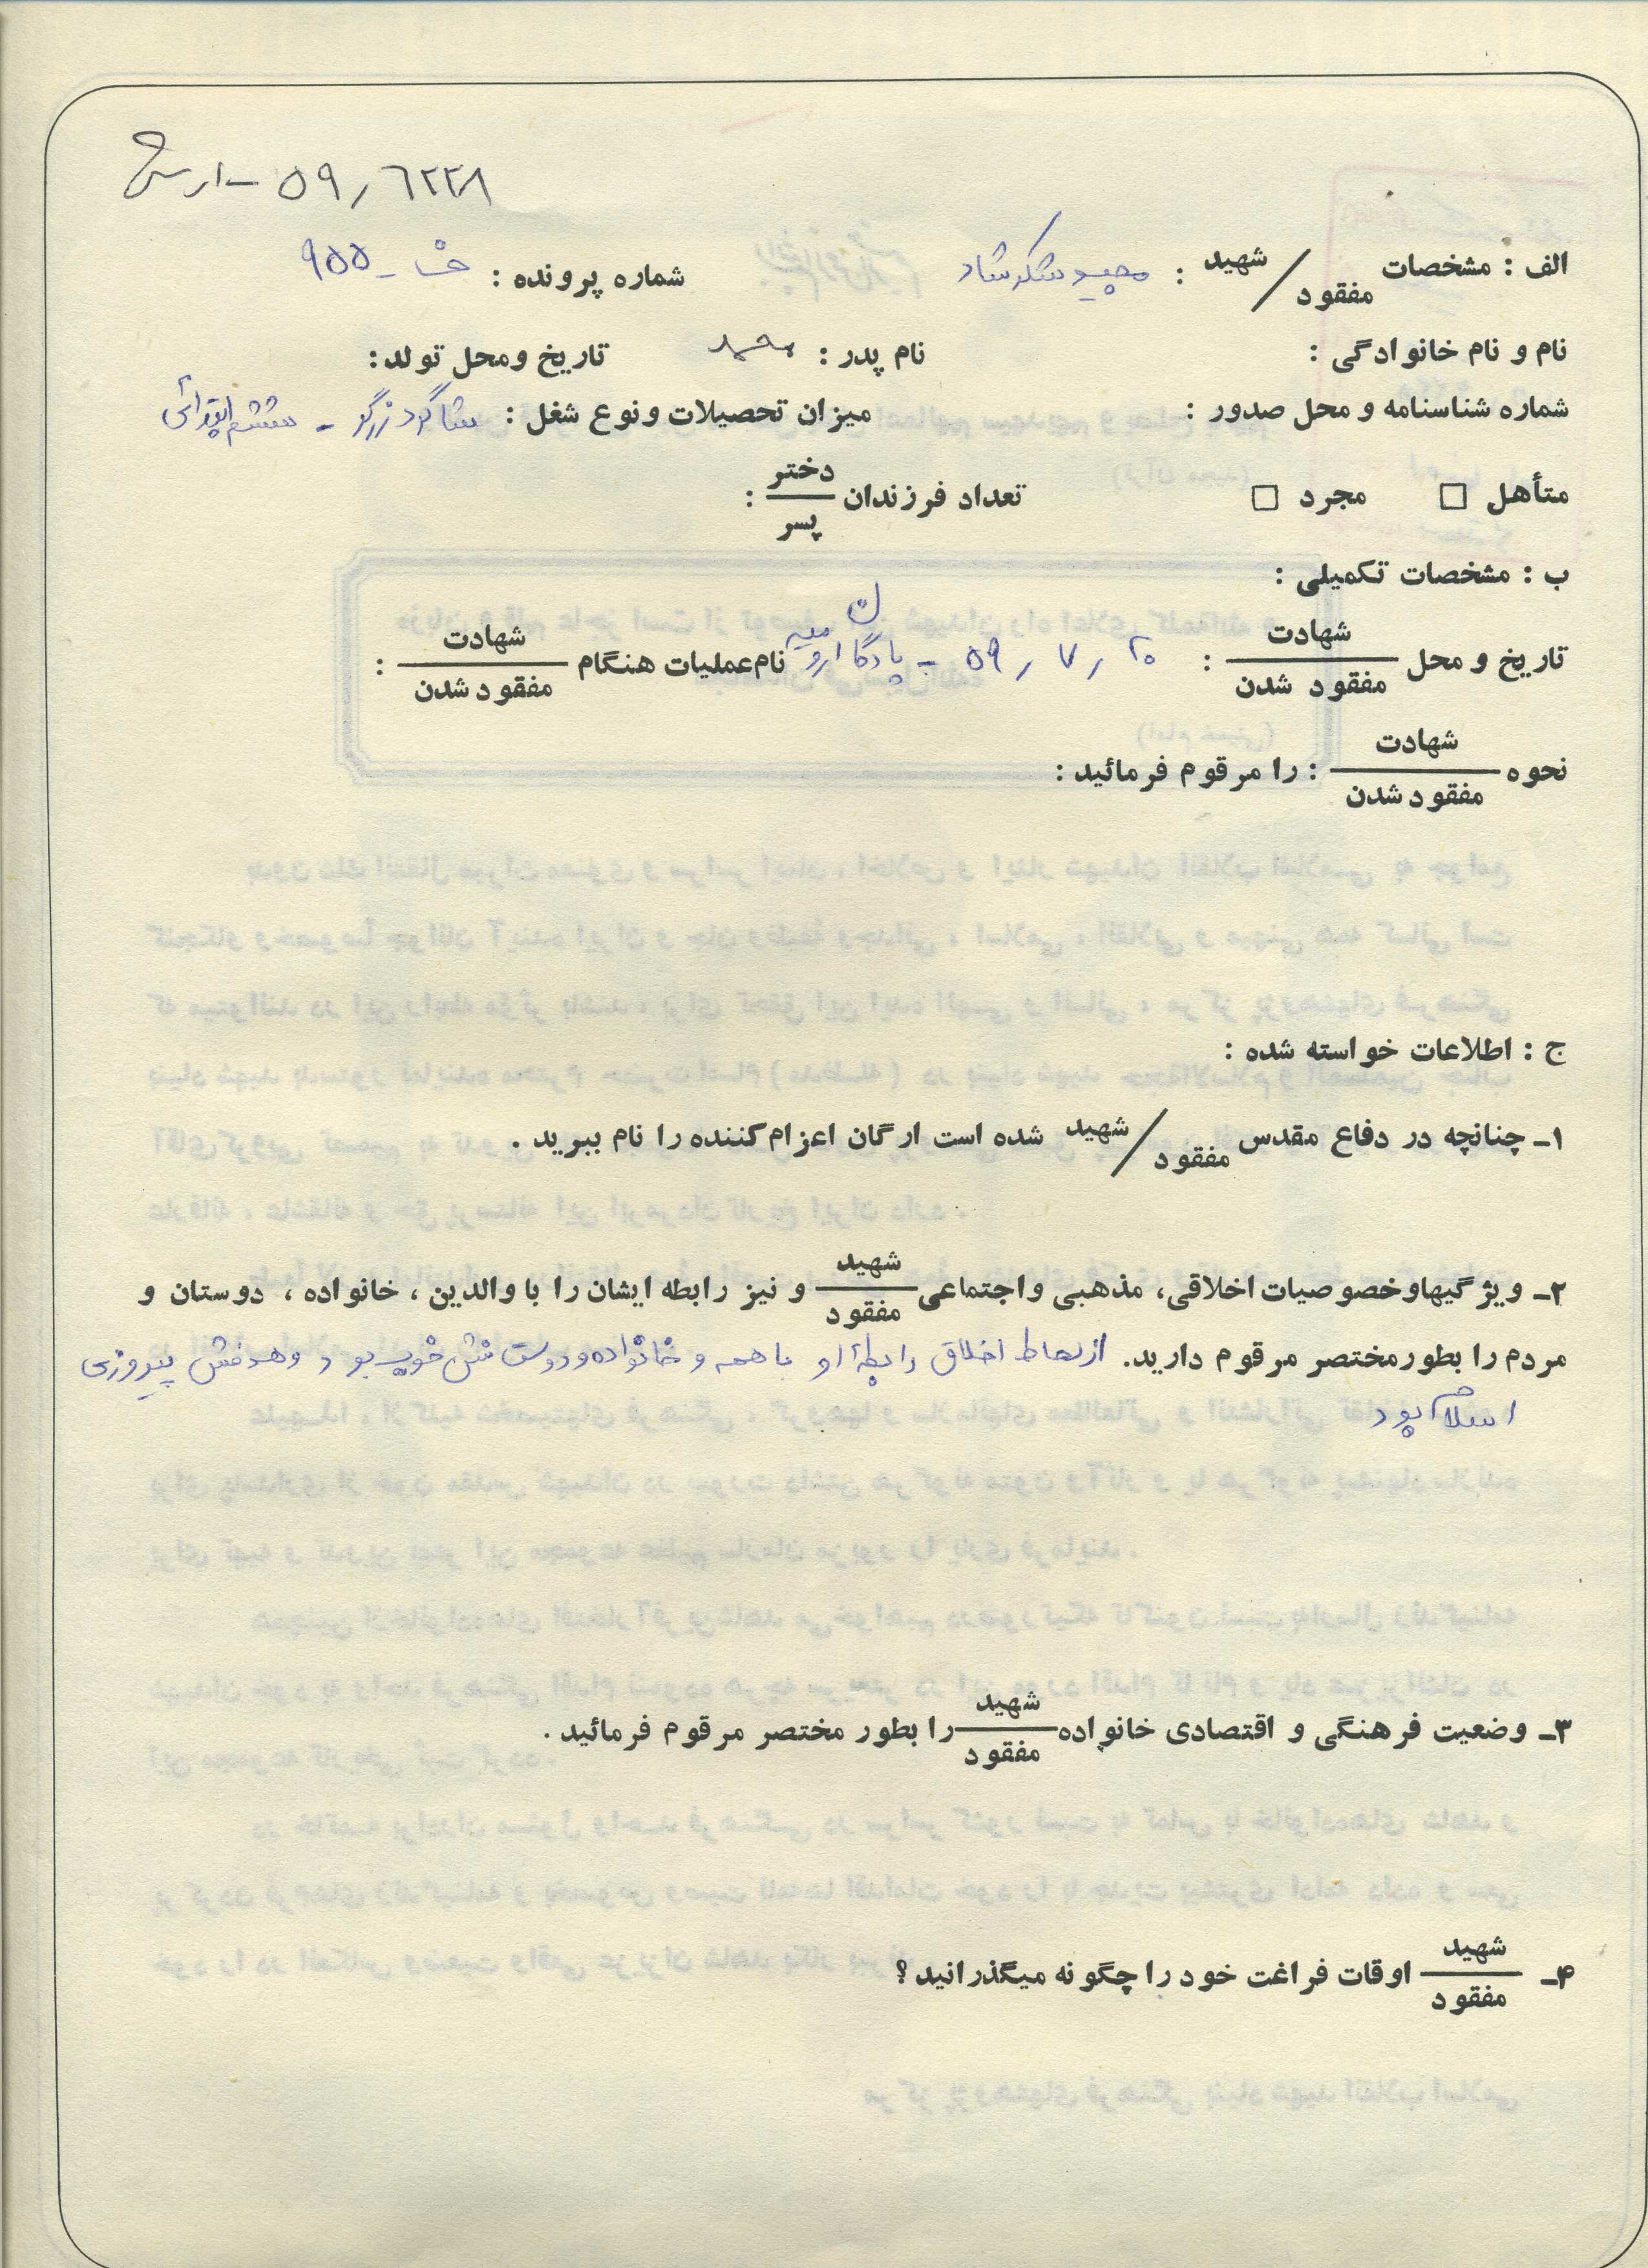 ۵۹٫۶۲۲۸ - ارتش
الف : مشخصات شهید / مفقود : مجید شکرشاد شماره پرونده : خ - ۹۵۵
نام و نام خانوادگی : نام پدر : محمد تاریخ ومحل تولد :
شماره شناسنامه و محل صدور : میزان تحصیلات ونوع شغل : شاگرد زرگر - ششم ابتدائی
متأهل □ مجرد □ تعداد فرزندان دختر / پسر :
ب : مشخصات تکمیلی :
تاریخ و محل شهادت / مفقود شدن : ۲۰ , ۷ , ۵۹ - پادگان ارومیه نام عملیات هنگام شهادت / مفقود شدن :
نحوه شهادت / مفقود شدن : را مرقوم فرمائید :
ج : اطلاعات خواسته شده :
۱- چنانچه در دفاع مقدس شهید / مفقود شده است ارگان اعزام کننده را نام ببرید .
۲- ویژگیهاوخصوصیات اخلاقی، مذهبی واجتماعی شهید / مفقود و نیز رابطه ایشان را با والدین ، خانواده ، دوستان و
مردم را بطورمختصر مرقوم دارید. ازلحاظ اخلاق رابطه او با همه و خانواده و دوستانش خوب بود و هدفش پیروزی
اسلام بود
۳- وضعیت فرهنگی و اقتصادی خانواده شهید / مفقود را بطور مختصر مرقوم فرمائید .
۴- شهید / مفقود اوقات فراغت خود را چگونه میگذرانید ؟